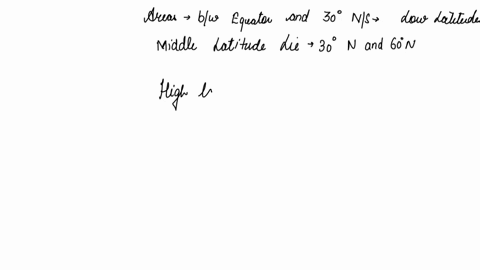 Areas → b/w Equator and 30° N/S → Low Latitude
Middle Latitude Lie → 30° N and 60° N
High l